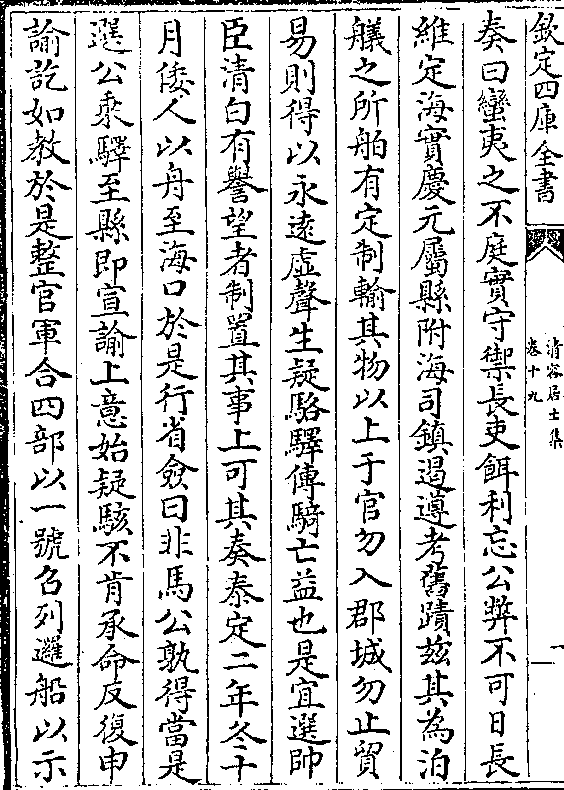 欽定四庫全書
清容居士集
卷十九
一
奏曰蠻夷之不庭實守禦長吏餌利忘公弊不可日長
維定海實慶元屬縣附海司鎮遏遵考舊蹟茲其為泊
艤之所舶有定制輸其物以上于官勿入郡城勿止貿
易則得以永遠虛聲生疑駱驛傳騎亡益也是宜選帥
臣清白有譽望者制置其事上可其奏泰定二年冬十
月倭人以舟至海口於是行省僉曰非馬公孰得當是
選公乘驛至縣即宣諭上意始疑駭不肯承命反復申
諭訖如教於是整官軍合四部以一號召列邏船以示